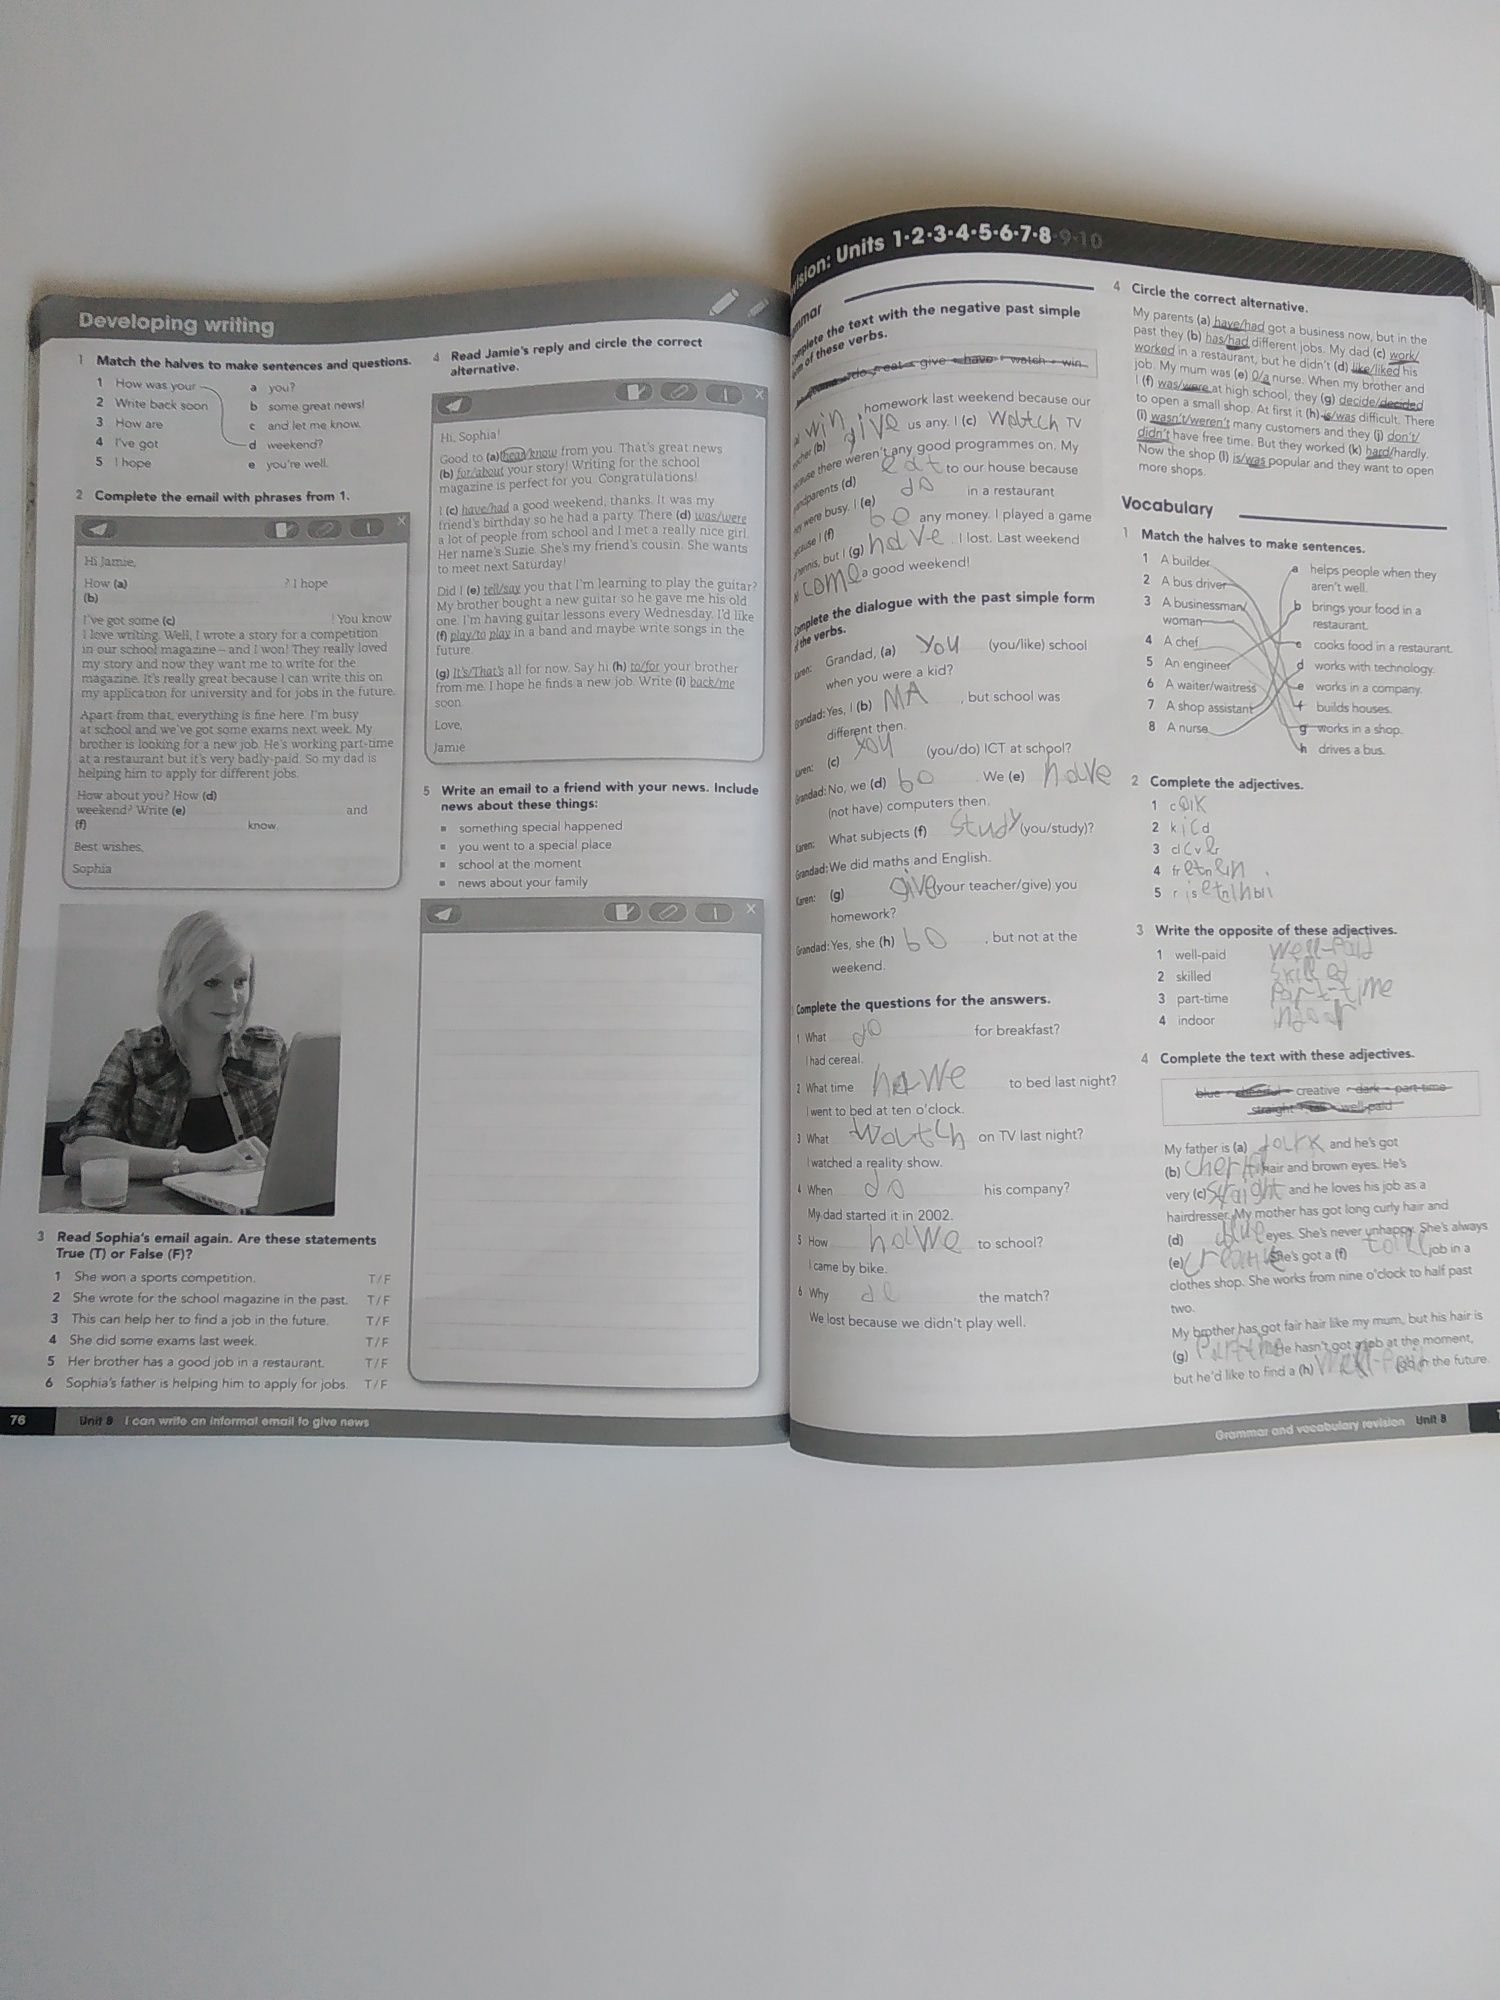 Developing writing
1 Match the halves to make sentences and questions.
1 How was your
2 Write back soon
3 How are
4 I've got
5 I hope
a you?
b some great news!
c and let me know.
d weekend?
e you're well.
2 Complete the email with phrases from 1.
Hi Jamie,
How (a) ? I hope
(b)
I've got some (c) ! You know
I love writing. Well, I wrote a story for a competition
in our school magazine – and I won! They really loved
my story and now they want me to write for the
magazine. It's really great because I can write this on
my application for university and for jobs in the future.
Apart from that, everything is fine here. I'm busy
at school and we've got some exams next week. My
brother is looking for a new job. He's working part-time
at a restaurant but it's very badly-paid. So my dad is
helping him to apply for different jobs.
How about you? How (d)
weekend? Write (e) and
(f) know.
Best wishes,
Sophia
3 Read Sophia's email again. Are these statements
True (T) or False (F)?
1 She won a sports competition. T / F
2 She wrote for the school magazine in the past. T / F
3 This can help her to find a job in the future. T / F
4 She did some exams last week. T / F
5 Her brother has a good job in a restaurant. T / F
6 Sophia's father is helping him to apply for jobs. T / F
4 Read Jamie's reply and circle the correct
alternative.
Hi, Sophia!
Good to (a) hear/know from you. That's great news
(b) for/about your story! Writing for the school
magazine is perfect for you. Congratulations!
I (c) have/had a good weekend, thanks. It was my
friend's birthday so he had a party. There (d) was/were
a lot of people from school and I met a really nice girl.
Her name's Suzie. She's my friend's cousin. She wants
to meet next Saturday!
Did I (e) tell/say you that I'm learning to play the guitar?
My brother bought a new guitar so he gave me his old
one. I'm having guitar lessons every Wednesday. I'd like
(f) play/to play in a band and maybe write songs in the
future.
(g) It's/That's all for now. Say hi (h) to/for your brother
from me. I hope he finds a new job. Write (i) back/me
soon.
Love,
Jamie
5 Write an email to a friend with your news. Include
news about these things:
something special happened
you went to a special place
school at the moment
news about your family
76 Unit 8 I can write an informal email to give news
Units 1·2·3·4·5·6·7·8·9·10
the text with the negative past simple
of these verbs.
do eat give have watch win
win homework last weekend because our
(b) give us any. I (c) watch TV
because there weren't any good programmes on. My
(d) eat to our house because
were busy. I (e) do in a restaurant
(f) be any money. I played a game
tennis, but I (g) have. I lost. Last weekend
come a good weekend!
Complete the dialogue with the past simple form
of the verbs.
Karen: Grandad, (a) you (you/like) school
when you were a kid?
Grandad: Yes, I (b) MA, but school was
different then.
Karen: (c) you (you/do) ICT at school?
Grandad: No, we (d) bo. We (e) have
(not have) computers then.
Karen: What subjects (f) study (you/study)?
Grandad: We did maths and English.
Karen: (g) give (your teacher/give) you
homework?
Grandad: Yes, she (h) bo, but not at the
weekend.
Complete the questions for the answers.
1 What do for breakfast?
I had cereal.
2 What time hawe to bed last night?
I went to bed at ten o'clock.
3 What watch on TV last night?
I watched a reality show.
4 When do his company?
My dad started it in 2002.
5 How hawe to school?
I came by bike.
6 Why the match?
We lost because we didn't play well.
4 Circle the correct alternative.
My parents (a) have/had got a business now, but in the
past they (b) has/had different jobs. My dad (c) work/
worked in a restaurant, but he didn't (d) like/liked his
job. My mum was (e) 0/a nurse. When my brother and
I (f) was/were at high school, they (g) decide/decided
to open a small shop. At first it (h) is/was difficult. There
(i) wasn't/weren't many customers and they (j) don't/
didn't have free time. But they worked (k) hard/hardly.
Now the shop (l) is/was popular and they want to open
more shops.
Vocabulary
1 Match the halves to make sentences.
1 A builder
2 A bus driver
3 A businessman/
woman
4 A chef
5 An engineer
6 A waiter/waitress
7 A shop assistant
8 A nurse
a helps people when they
aren't well.
b brings your food in a
restaurant.
c cooks food in a restaurant.
d works with technology.
e works in a company.
f builds houses.
g works in a shop.
h drives a bus.
2 Complete the adjectives.
1 c
2 k i d
3 cl v r
4 fr
5 r s bl
3 Write the opposite of these adjectives.
1 well-paid well-paid
2 skilled skilled
3 part-time part-time
4 indoor indoor
4 Complete the text with these adjectives.
blue cheerful creative dark part-time
straight tall well-paid
My father is (a) dark and he's got
(b) hair and brown eyes. He's
very (c) straight and he loves his job as a
hairdresser. My mother has got long curly hair and
(d) blue eyes. She's never unhappy. She's always
(e) She's got a (f) tall job in a
clothes shop. She works from nine o'clock to half past
two.
My brother has got fair hair like my mum, but his hair is
(g) He hasn't got a job at the moment,
but he'd like to find a (h) well-paid job in the future.
Grammar and vocabulary revision Unit 8